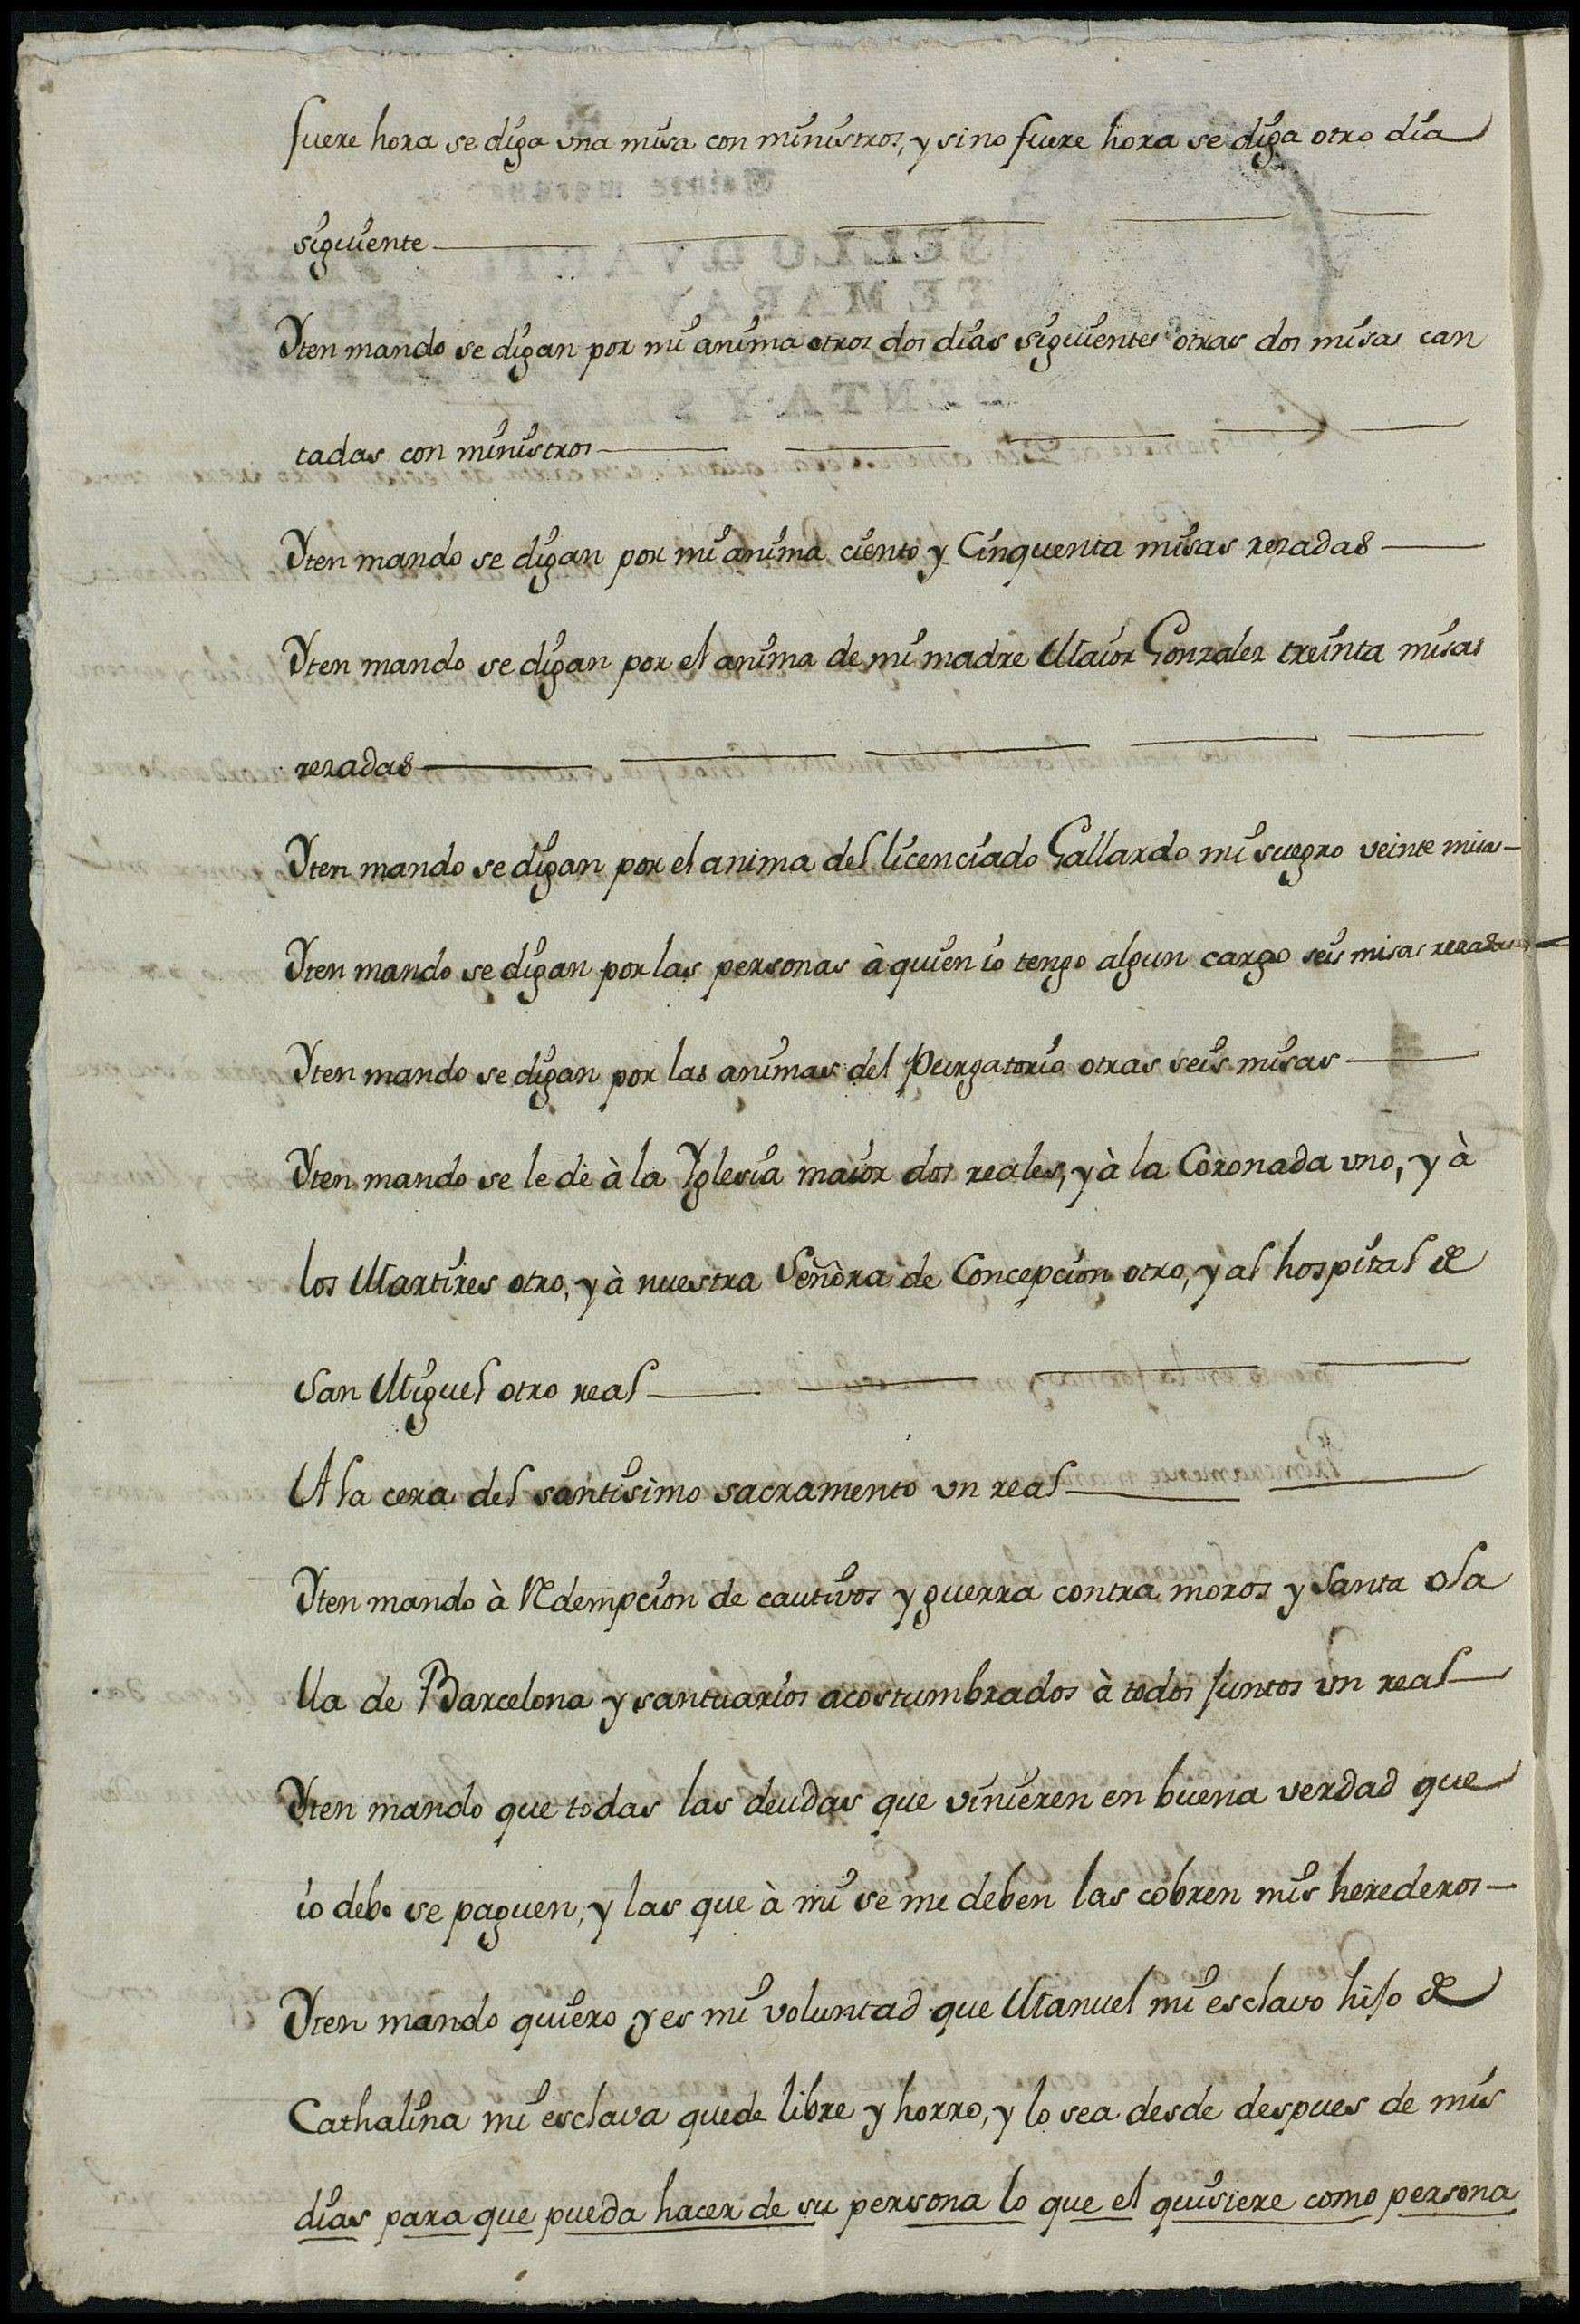 fuere hora se diga vna misa con ministros, y si no fuere hora se diga otro dia
siguiente
Yten mando se digan por mi anima otros dos dias siguientes otras dos misas can
tadas con ministros
Yten mando se digan por mi anima ciento y Cinquenta misas rezadas
Yten mando se digan por el anima de mi madre Maior Gonzalez treinta misas
rezadas
Yten mando se digan por el anima del licenciado Gallardo mi suegro veinte misas
Yten mando se digan por las personas à quien io tengo algun cargo seis misas rezadas
Yten mando se digan por las animas del Purgatorio otras seis misas
Yten mando se le dè à la Yglesia maior dos reales, y à la Coronada vno, y à
los Martires otro, y à nuestra Señora de Concepcion otro, y al hospital de
San Miguel otro real
A la cera del santisimo sacramento vn real
Yten mando à Redempcion de cautivos y guerra contra moros y Santa ola
lla de Barcelona y santuarios acostumbrados à todos juntos vn real
Yten mando que todas las deudas que vinieren en buena verdad que
io debo se paguen, y las que à mi se me deben las cobren mis herederos
Yten mando quiero y es mi voluntad que Manuel mi esclavo hijo de
Cathalina mi esclava quede libre y horro, y lo sea desde despues de mis
dias para que pueda hacer de su persona lo que el quisiere como persona